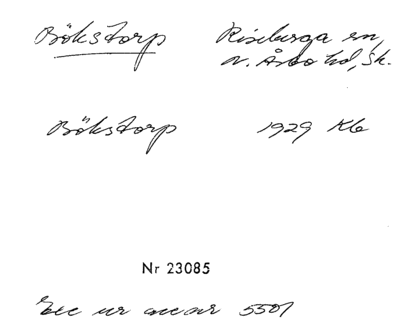 Bökstorp Riseberga sn,
N. Åsbo hd, Sk.
Bökstorp 1929 Kb
Nr 23085
5501